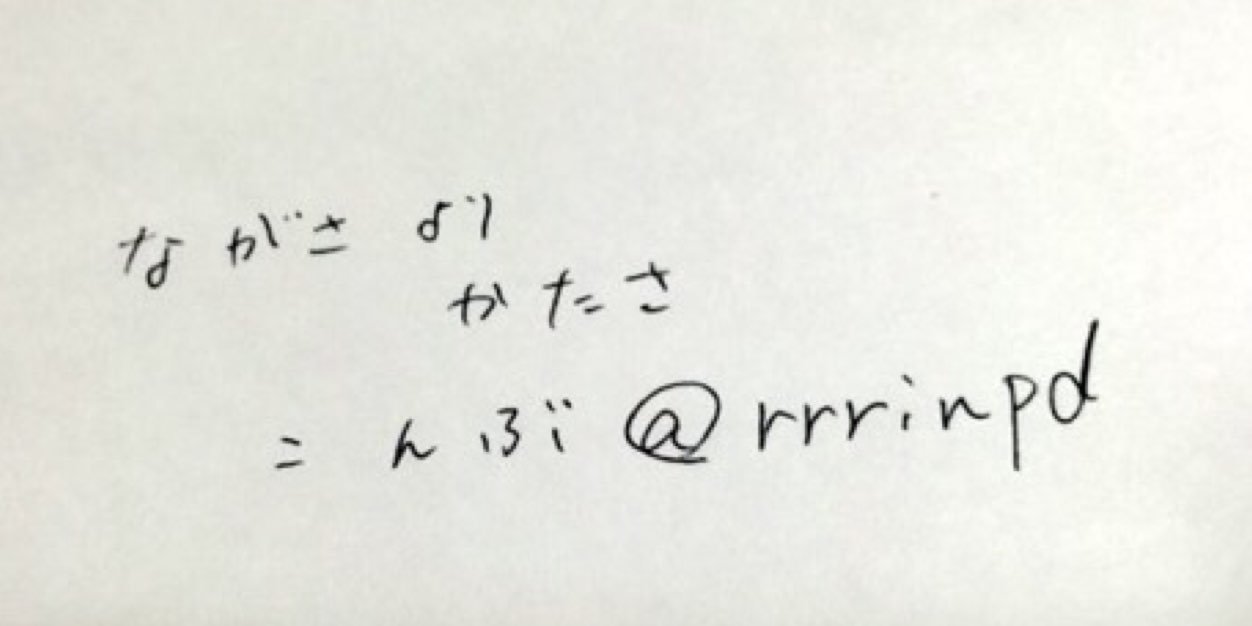 ながさ より
かたさ
こんぶ @rrrinpd